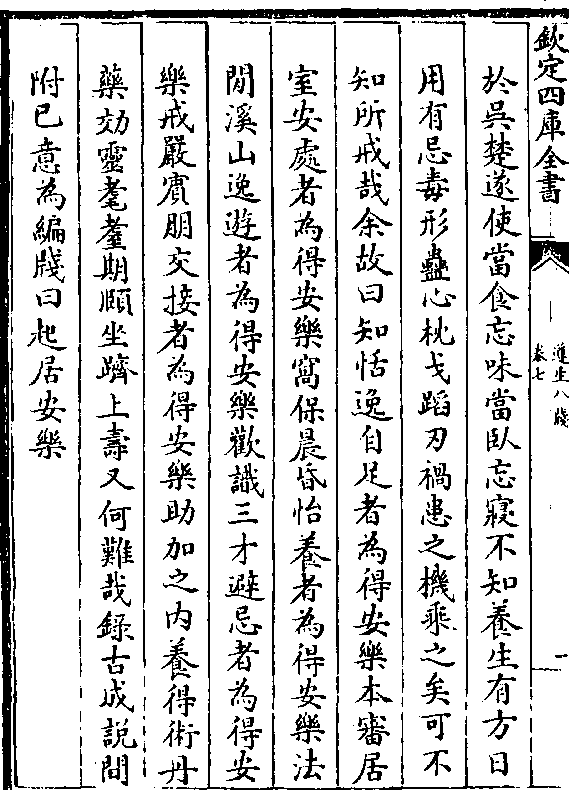 欽定四庫全書
遵生八牋
卷七
一
於吳楚遂使當食忘味當臥忘寢不知養生有方日
用有忌毒形蠱心枕戈蹈刃禍患之機乘之矣可不
知所戒哉余故曰知恬逸自足者為得安樂本審居
室安處者為得安樂窩保晨昏怡養者為得安樂法
閒溪山逸遊者為得安樂歡識三才避忌者為得安
樂戒嚴賓朋交接者為得安樂助加之內養得術丹
藥効靈耄耋期頤坐躋上壽又何難哉錄古成說間
附已意為編牋曰起居安樂